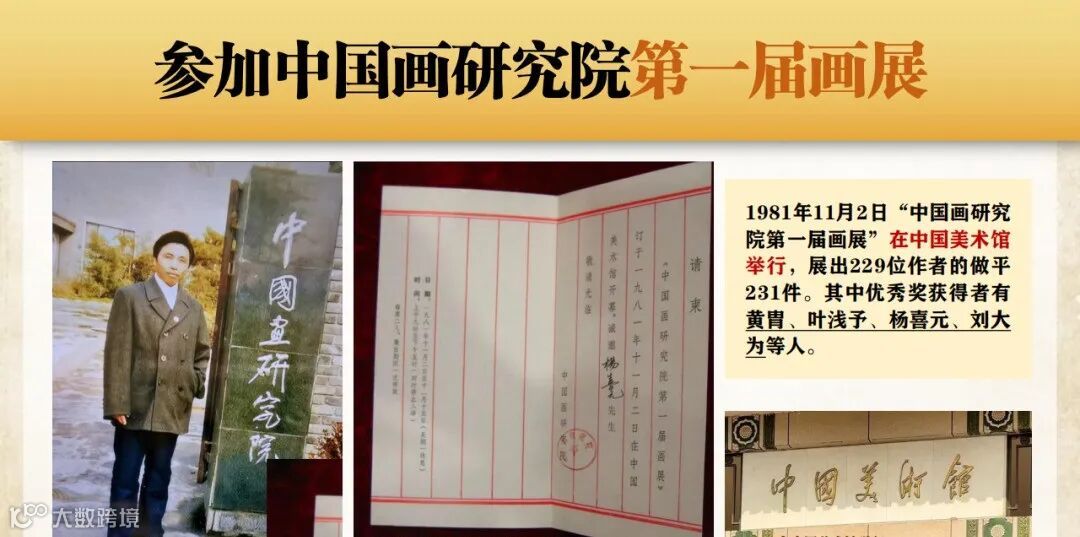 参加中国画研究院第一届画展
中國画研究院
请柬
“中国画研究院第一届画展”
订于一九八一年十一月二日在中国
美术馆开幕。诚邀杨喜元先生
敬请光临
中国画研究院
1981年11月2日“中国画研究
院第一届画展”在中国美术馆
举行，展出229位作者的做平
231件。其中优秀奖获得者有
黄胄、叶浅予、杨喜元、刘大
为等人。
中國美術館
大数跨境